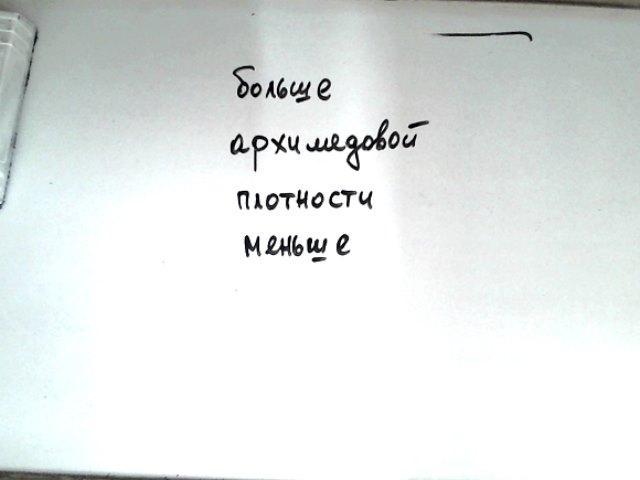 больше
архимедовой
плотности
меньше